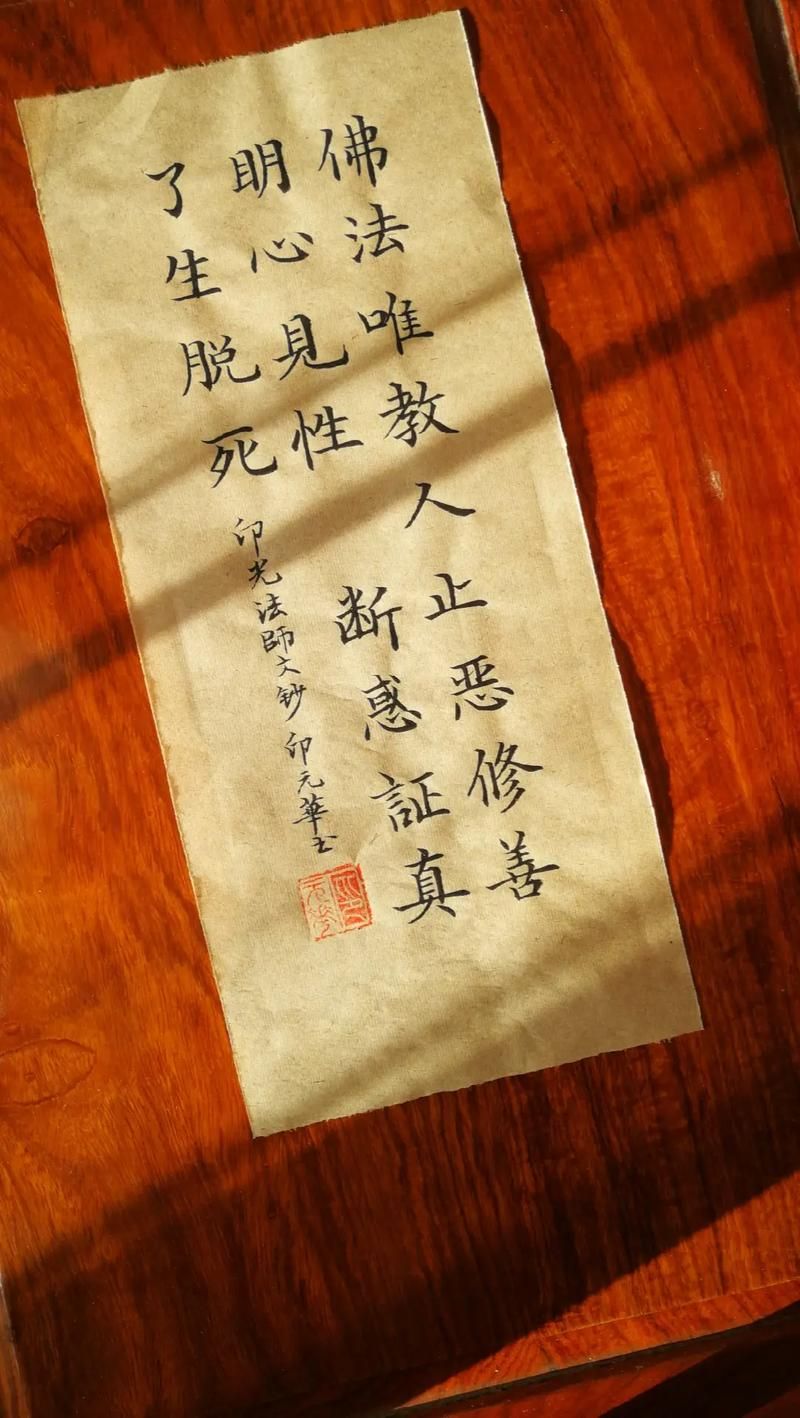 佛法唯教人止恶修善
明心見性 断惑証真
了生脱死
印光法師文鈔 印元華书